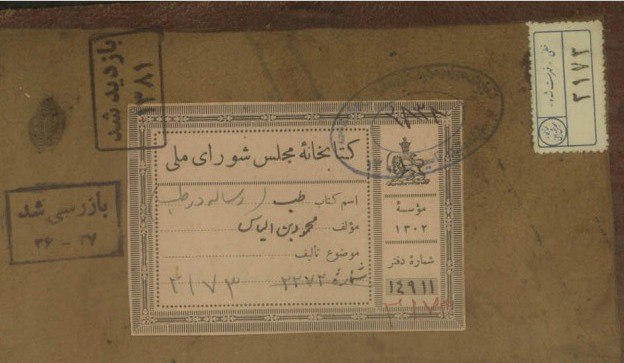 بازدید شد
۱۳۸۱
بازرسی شد
۳۶ - ۳۷
کتابخانهٔ مجلس شورای ملی
اسم کتاب طب (رساله در طب)
مؤلف محمود بن الیاس
موضوع تألیف
شمارهٔ ۲۲۷۲ ۲۱۷۳
مؤسسهٔ
۱۳۰۲
شمارهٔ دفتر
۱۴۹۱۱
خطی
۲۱۷۳